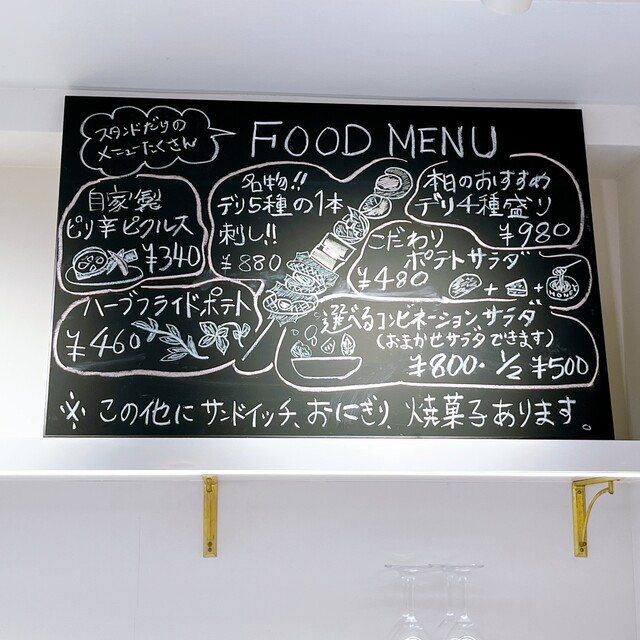 スタンドだりの
メニューたくさん
FOOD MENU
自家製
ピリ辛ピクルス
¥340
名物!!
デリ5種の1本
刺し!!
¥880
本日のおすすめ
デリ4種盛り
¥980
こだわり
ポテトサラダ
¥480
+ +
HONEY
ハーブフライドポテト
¥460
選べるコンビネーションサラダ
(おまかせサラダできます)
¥800・1/2 ¥500
※ この他に サンドイッチ、おにぎり、焼菓子あります。